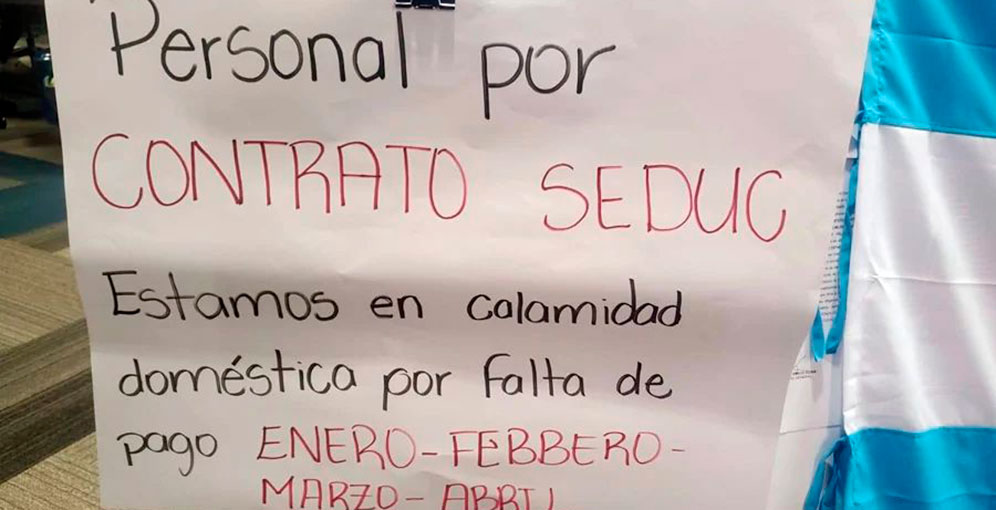 Personal por
CONTRATO SEDUC
Estamos en calamidad
doméstica por falta de
pago ENERO-FEBBERO-
MARZO-ABRIL